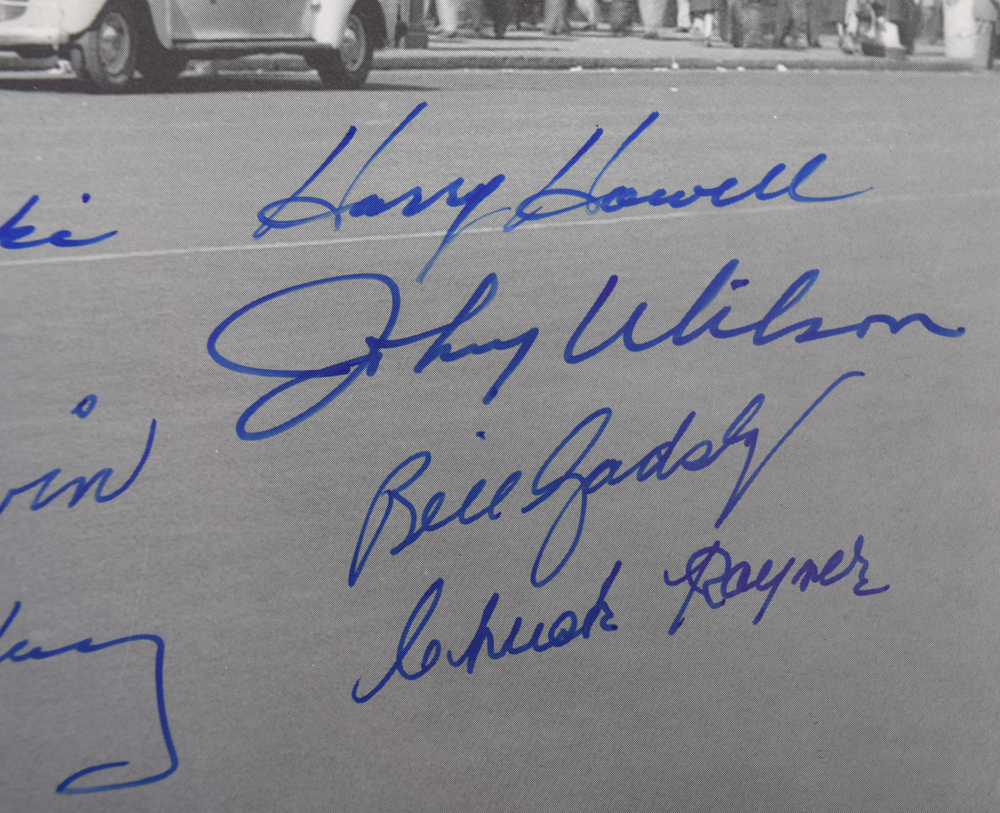 Harry Howell
Johnny Wilson
Bill Gadsby
Chuck Rayner